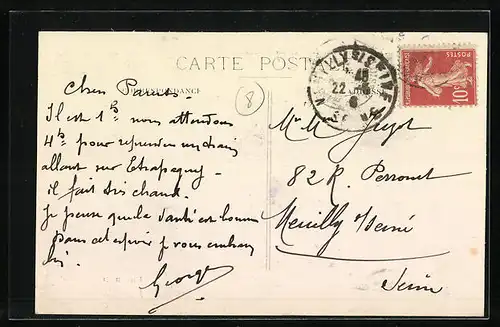 CARTE POSTALE
CORRESPONDANCE
ADRESSE
8
NEUILLY S/SEINE
22
SEINE
POSTES
10c
Chers Parents.
Il est 1h nous attendons
4h pour reprendre un train
allant sur Etrepagny.
il fait très chaud.
Je pense que la santé est bonne
Dans cet espoir je vous embrasse
Georges
Mr Mme
82 R. Perronet
Neuilly s/Seine
Seine